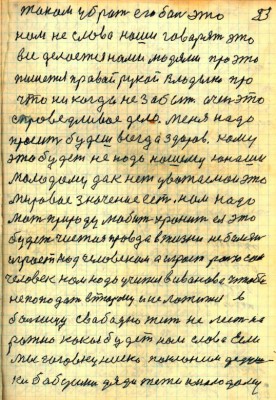 таким убрат его бал это 83
нам не слова наши говорят это
все делается нами людями про это
пишется правай рукой Владыко про
что ни когда не забыт а чет это
справедливое дело. Меня надо
просить будеш всегда здоров. кому
это будет не надо нашему юнаши
молодому да к нет уважаемой это
мировое значение ест. нам надо
мат природу любит хранит ей это
будет чистая правда в жизни не балезн
играет над человеком а играет
человек нам надо учится у иванова чтобы
не поподат в тюрму и не ложится в
болницу свабодно жит не лест на
рожно какая будет нам слава если
мы головку низко поклоним дедуш
ки бабушки дяди тети и молодому